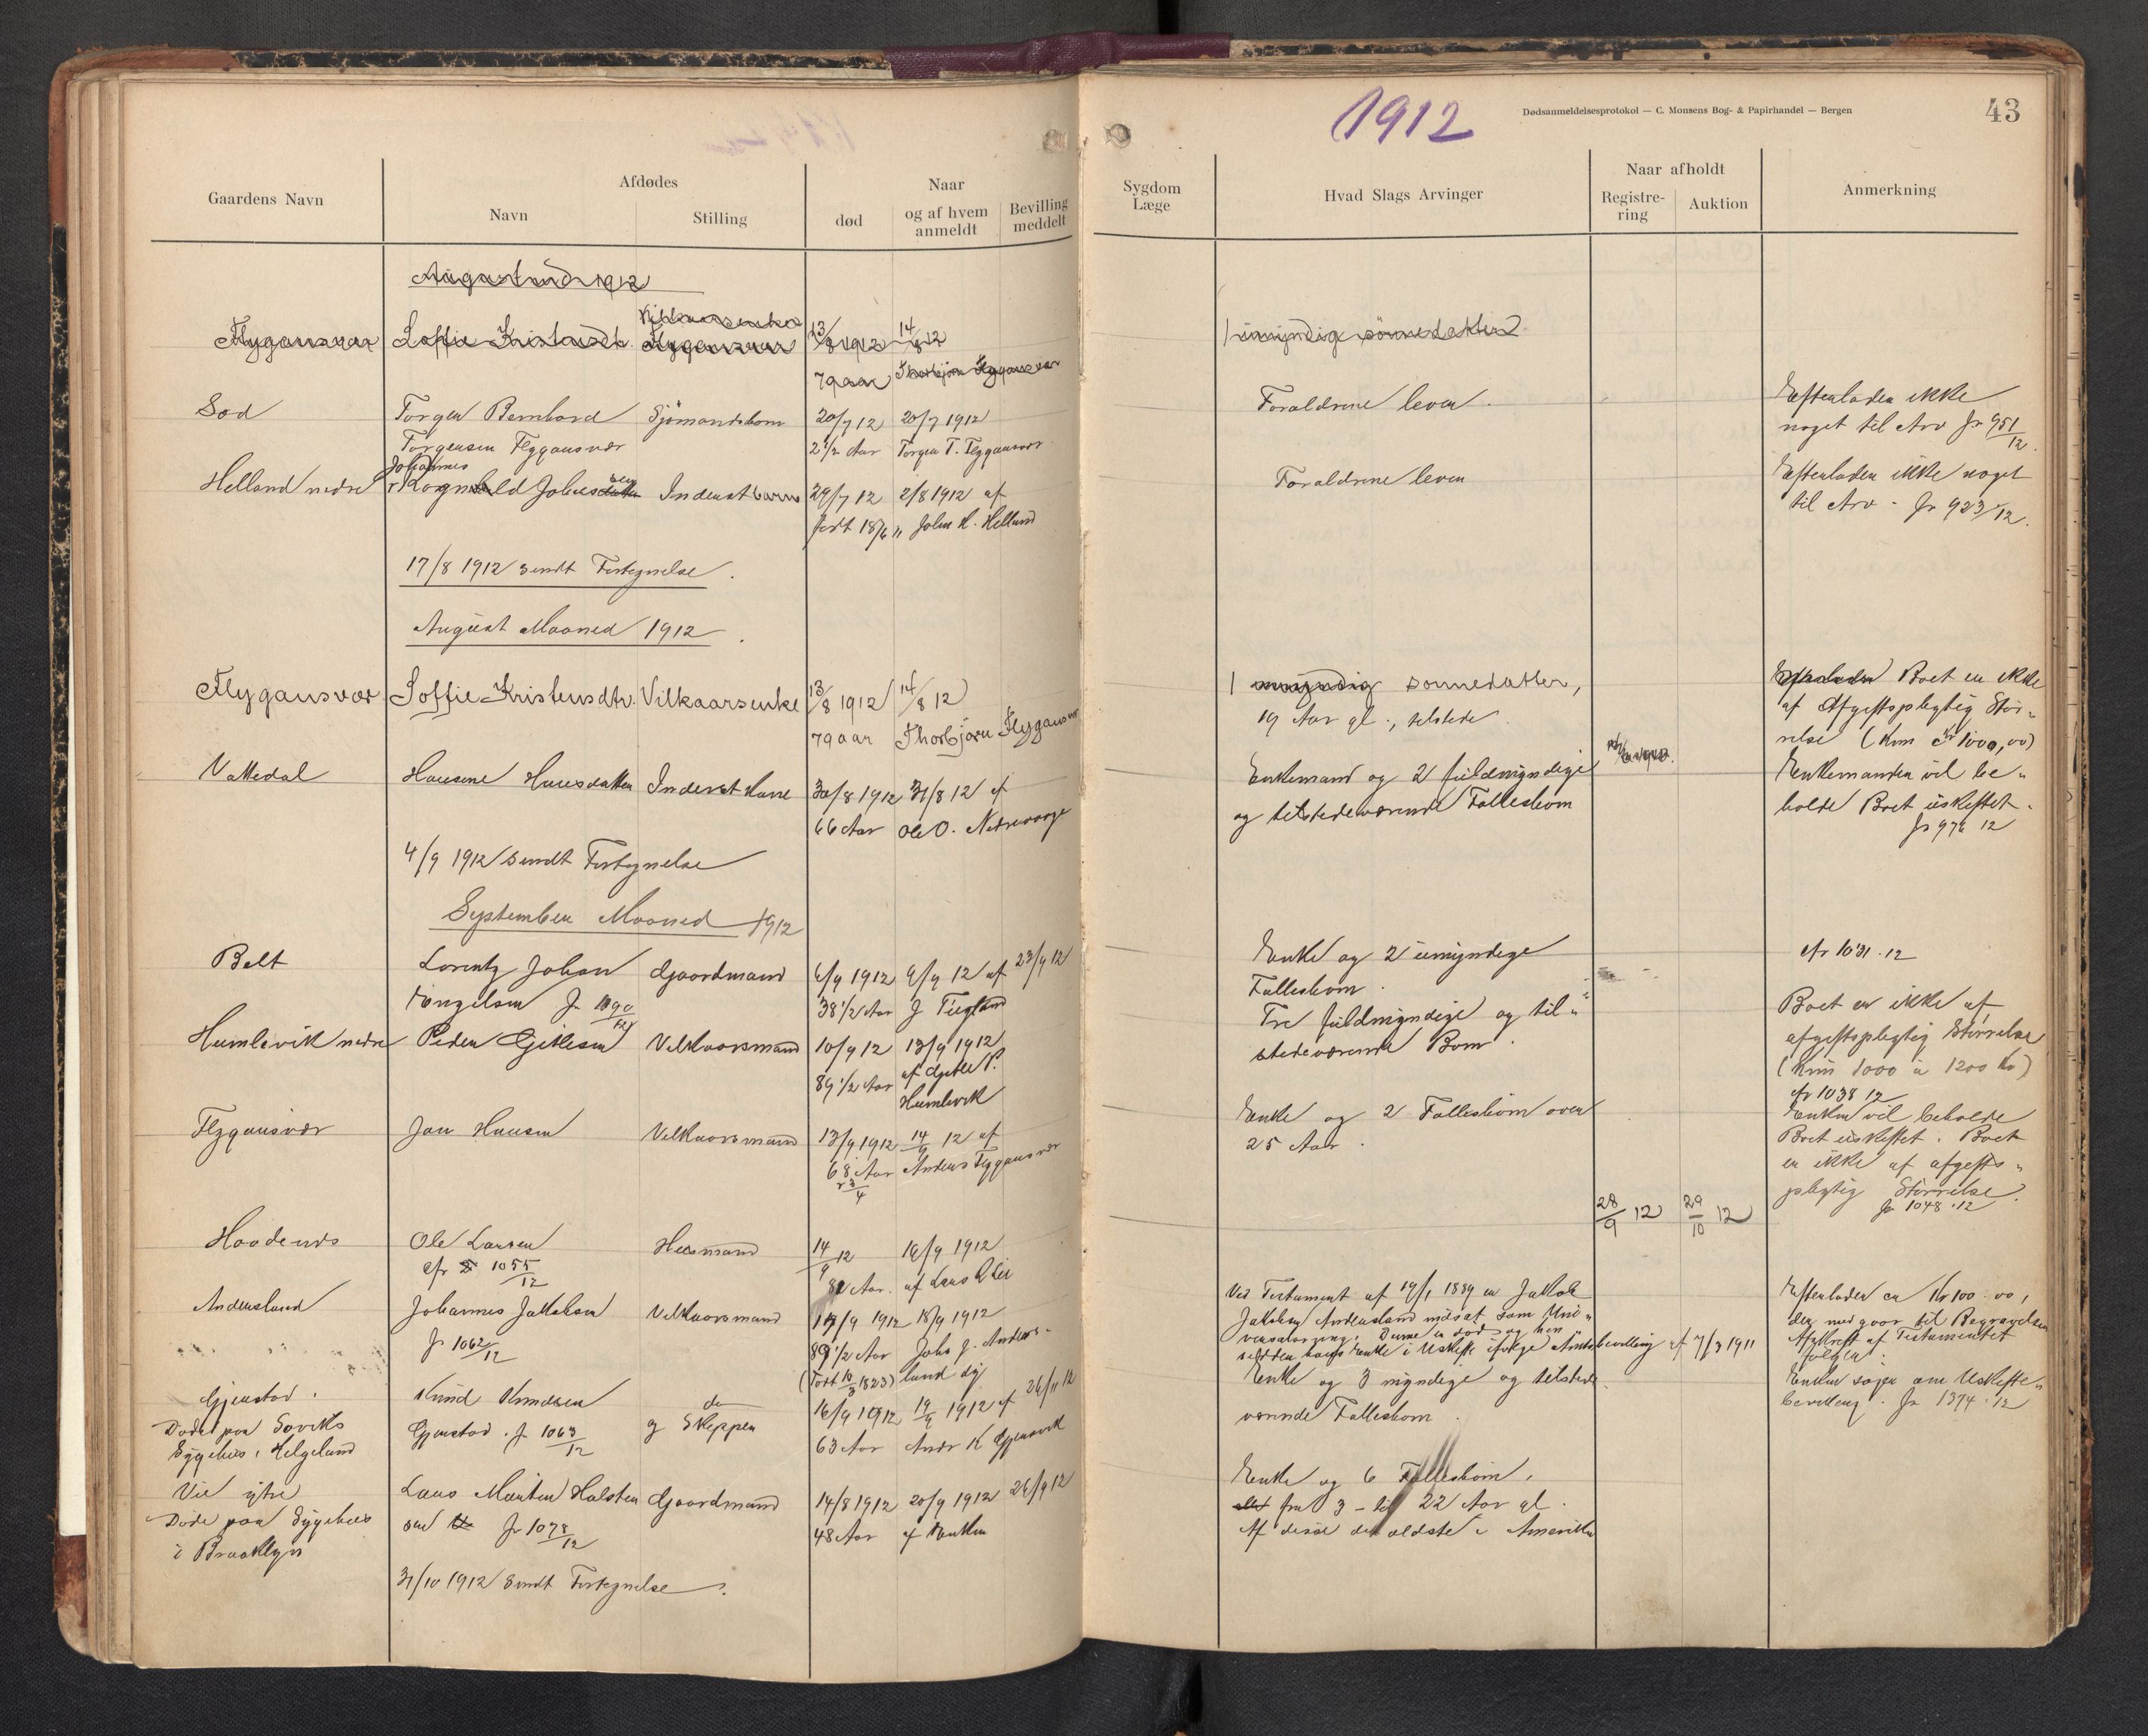 1912
Dødsanmeldelsesprotokol — C. Monsens Bog- & Papirhandel — Bergen
43
Gaardens Navn
Afdødes
Navn
Stilling
Naar
død
og af hvem anmeldt
Bevilling meddelt
Sygdom
Læge
Hvad Slags Arvinger
Naar afholdt
Registrering
Auktion
Anmerkning
1912
Flygansvær Soffie Kristensdtr. Vilkaarsenke Flygansvær 13/8 1912 14/8 12 1 umyndig sønnedatter
79 aar Thorbjørn Flygansvær
Sød Torger Bernhard Sjømandsbarn 20/7 12 20/7 1912 Forældrene lever. Efterlader ikke
Torgersen Flygansvær 2 1/2 Aar Torger T. Flygansvær noget til Arv Jr 951/12.
Johannes
Helland nedre Johs Inderstbarn 29/7 12 2/8 1912 af Forældrene lever Efterlader ikke noget
født 18/6 " Johs H. Helland til Arv - Jr 923/12.
17/8 1912 sendt Fortegnelse.
August Maaned 1912.
Flygansvær Soffie Kristensdtr. Vilkaarsenke 13/8 1912 14/8 12 1 umyndig sønnedatter, Efterlader Boet er ikke
79 aar Thorbjørn Flygansvær 19 Aar gl., tilstede af Afgiftspligtig Stør-
relse (Kun Kr 1000,00)
Vattedal Hansine Hansdatter Inderst Kone 30/8 1912 31/8 12 af Enkemand og 2 fuldmyndige Enkemanden vil be-
66 Aar Ole O. Nedrevaage og tilstedeværende Fællesbørn holde Boet uskiftet.
Jr 976 12
4/9 1912 sendt Fortegnelse
September Maaned 1912
Belt Lorentz Johan Gaardmand 6/9 1912 9/9 12 af 23/9 12 Enke og 2 umyndige cfr 1031.12
Engelsen Jr 1090/12 38 1/2 Aar J Tiegland Fællesbørn.
Humlevik nedre Peder Gitlesen Vilkaarsmand 10/9 12 13/9 1912 Tre fuldmyndige og til- Boet er ikke af
89 1/2 Aar af Gitle P. stedeværende Børn. afgiftspligtig Størrelse
Humlevik (Kun 1000 à 1200 Kr)
cfr 1038 12
Flygansvær Jan Hansen Vilkaarsmand 13/9 1912 14/9 12 af Enke og 2 Fællesbørn over Enken vil beholde
68 Aar Anders Flygansvær 25 Aar. Boet uskiftet. Boet
3/4 er ikke af afgifts-
pligtig Størrelse.
28/9 12 29/10 12 Jr 1048.12
Ole Larsen Husmand 14/9 12 16/9 1912
cfr 1055/12 Aar. af Lars
Andersland Johannes Jakobsen Vilkaarsmand 17/9 1912 18/9 1912 Ved Testament af 19/1 1889 er Jakob Efterlader ca Kr 100.00,
Jr 1062/12 89 1/2 Aar Johs J. Anders- Jakobsen Andersland indsat som Uni- der medgaar til Begravelsen
(Født 1823) land versalarving. Denne er død og han Afskrift af Testamentet
Enke i Uskifte ifølge Amtsbevilling af 7/3 1911 følger.
Gjerstad. Knud Knudsen 16/9 1912 19/9 1912 af 26/11 12 Enke og 3 myndige og tilstede- Enken søger om Uskifte-
Døde paa Gjerstad. Jr 1063/12 Skipper 63 Aar værende Fællesbørn. bevilling. Jr 1374.12
Sygehus, Helgeland
Vie ytre Lars Martin Halsten- Gaardmand 14/8 1912 20/9 1912 26/9 12 Enke og 6 Fællesbørn,
Døde paa Sygehus sen Jr 1078/12 48 Aar af Enken fra 3 - til 22 Aar gl.
i Brooklyn Af disse det ældste i Amerika
31/10 1912 sendt Fortegnelse.